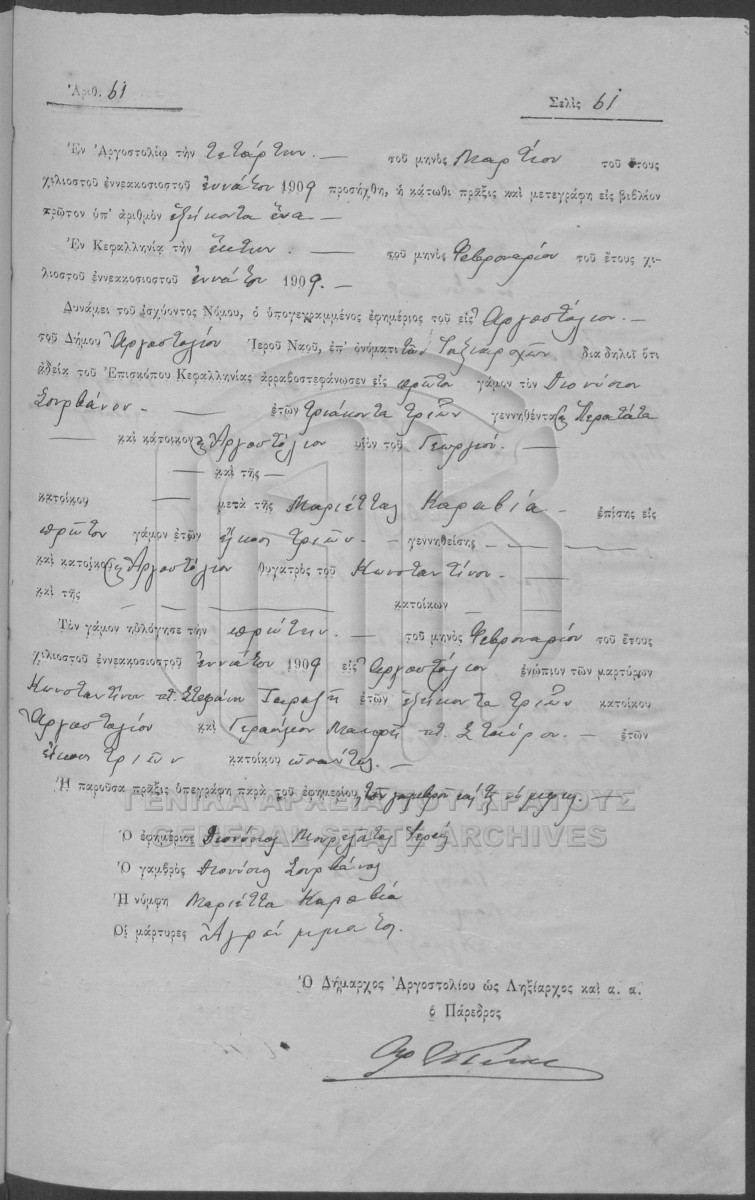 Ἀριθ. 61
Σελὶς 61
Ἐν Ἀργοστολίῳ τὴν τετάρτην — τοῦ μηνὸς Μαρτίου τοῦ ἔτους
χιλιοστοῦ ἐννεακοσιοστοῦ ἐννάτου 1909 προσήχθη, ἡ κάτωθι πρᾶξις καὶ μετεγράφη εἰς βιβλίον
πρῶτον ὑπ' ἀριθμὸν ἑξήκοντα ἕνα —
Ἐν Κεφαλληνίᾳ τὴν ἕκτην — τοῦ μηνὸς Φεβρουαρίου τοῦ ἔτους χι-
λιοστοῦ ἐννεακοσιοστοῦ ἐννάτου 1909. —
Δυνάμει τοῦ ἰσχύοντος Νόμου, ὁ ὑπογεγραμμένος ἐφημέριος τοῦ εἰς Ἀργοστόλιον —
τοῦ Δήμου Ἀργοστολίου Ἱεροῦ Ναοῦ, ἐπ' ὀνόματι τῶν Ταξιαρχῶν διαδηλοῖ ὅτι
ἀδείᾳ τοῦ Ἐπισκόπου Κεφαλληνίας ἀρραβοστεφάνωσεν εἰς πρῶτον γάμον τὸν Διονύσιον
Σουρβάνον — ἐτῶν τριάκοντα τριῶν γεννηθέντα εἰς Περατάτα
— καὶ κάτοικον εἰς Ἀργοστόλιον υἱὸν τοῦ Γεωργίου —
— καὶ τῆς —
κατοίκου — μετὰ τῆς Μαριέττας Καραβία — ἐπίσης εἰς
πρῶτον γάμον ἐτῶν εἴκοσι τριῶν — γεννηθείσης —
καὶ κατοίκου εἰς Ἀργοστόλιον θυγατρὸς τοῦ Κωνσταντίνου —
καὶ τῆς — κατοίκων —
Τὸν γάμον ηὐλόγησε τὴν πρώτην — τοῦ μηνὸς Φεβρουαρίου τοῦ ἔτους
χιλιοστοῦ ἐννεακοσιοστοῦ ἐννάτου 1909 εἰς Ἀργοστόλιον ἐνώπιον τῶν μαρτύρων
Κωνσταντίνου Στεφάνου ἐτῶν ἑξήκοντα τριῶν κατοίκου
Ἀργοστολίου καὶ Γερασίμου Σταύρου — ἐτῶν
εἴκοσι τριῶν κατοίκου ὡσαύτως —
Ἡ παροῦσα πρᾶξις ὑπεγράφη παρὰ τοῦ ἐφημερίου, τοῦ γαμβροῦ καὶ τῆς νύμφης —
ΓΕΝΙΚΑ ΑΡΧΕΙΑ ΤΟΥ ΚΡΑΤΟΥΣ
GENERAL STATE ARCHIVES
Ὁ ἐφημέριος Διονύσιος Μουρελάτος Ἱερεύς
Ὁ γαμβρὸς Διονύσιος Σουρβάνος
Ἡ νύμφη Μαριέττα Καραβία
Οἱ μάρτυρες Ἀγράμματοι
Ὁ Δήμαρχος Ἀργοστολίου ὡς Ληξίαρχος καὶ α. α.
ὁ Πάρεδρος